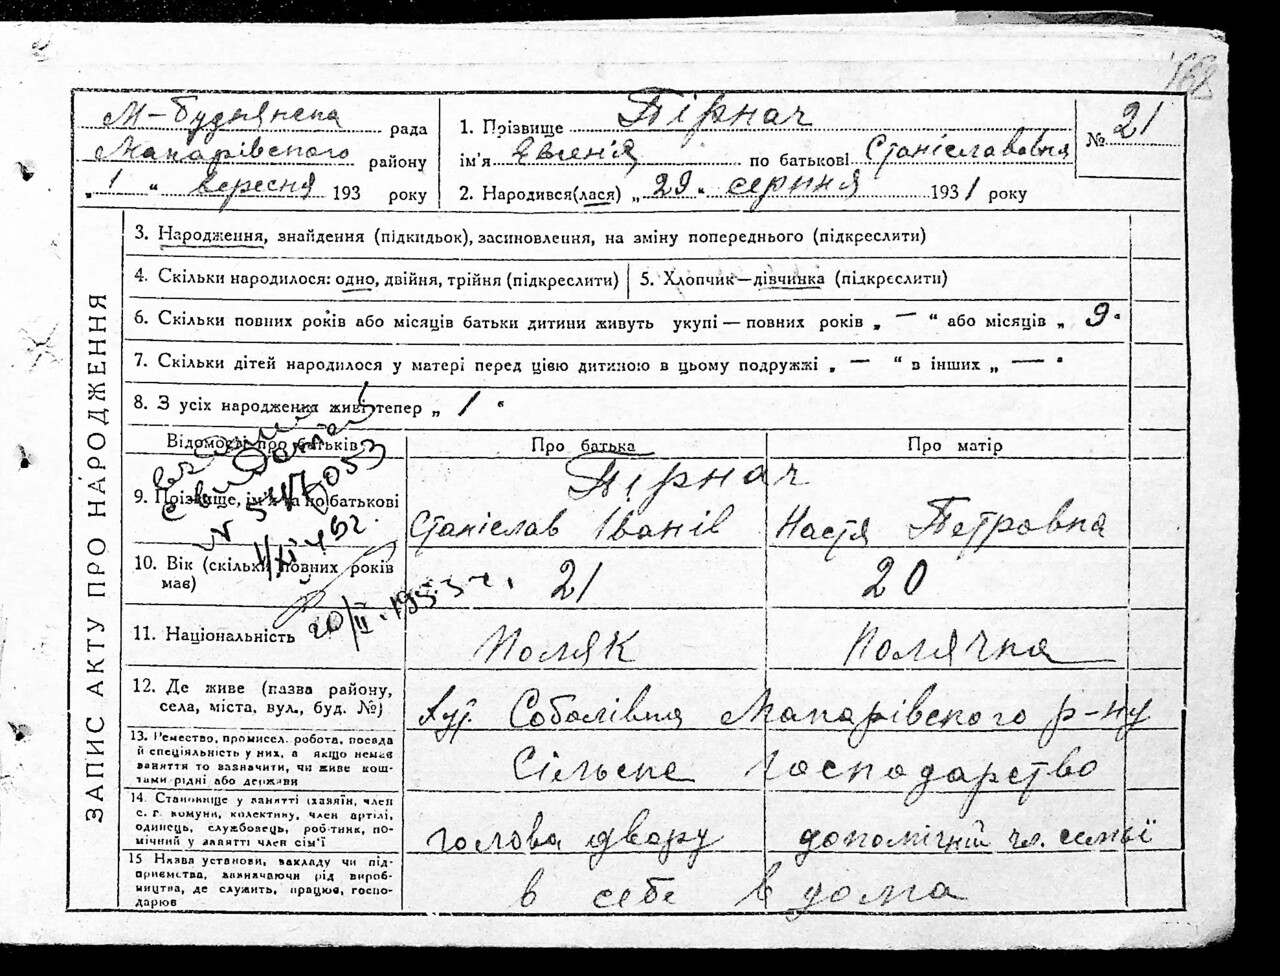 168
М-Буднянська рада
Макарівського району
„ 1 “ вересня 193 року
1. Прізвище Пірнач
ім'я Евгенія по батькові Станіславовна
2. Народився(лася) „ 29 “ серпня 1931 року
№ 21
ЗАПИС АКТУ ПРО НАРОДЖЕННЯ
3. Народження, знайдення (підкидьок), засиновлення, на зміну попереднього (підкреслити)
4. Скільки народилося: одно, двійня, трійня (підкреслити)
5. Хлопчик—дівчинка (підкреслити)
6. Скільки повних років або місяців батьки дитини живуть укупі — повних років „ — “ або місяців „ 9 “
7. Скільки дітей народилося у матері перед цією дитиною в цьому подружжі „ — “ в інших „ — “
8. З усіх народження живі тепер „ 1 “
Відомості про батьків
Про батька
Про матір
9. Прізвище, ім'я та по батькові
Пірнач
Станіслав Іванів
Настя Петровна
10. Вік (скільки повних років
має)
21
20
20/II.1953 г.
11. Національність
Поляк
Полячка
12. Де живе (назва району,
села, міста, вул., буд. №)
Хут. Соболівка Макарівского р-ну
13. Ремество, промисел. робота, посада
й спеціяльність у них, а якщо немає
заняття то зазначити, чи живе кош-
тами рідні або держави
Сільске господарство
14. Становище у занятті (хазяїн, член
с. г. комуни, колективу, член артілі,
одинець, службовець, робітник, по-
мічний у занятті член сім'ї
голова двору
допомічний чл. семьї
15 Назва установи, закладу чи під-
приємства, зазначаючи рід вироб-
ництва, де служить, працює, госпо-
дарює
в себе в дома